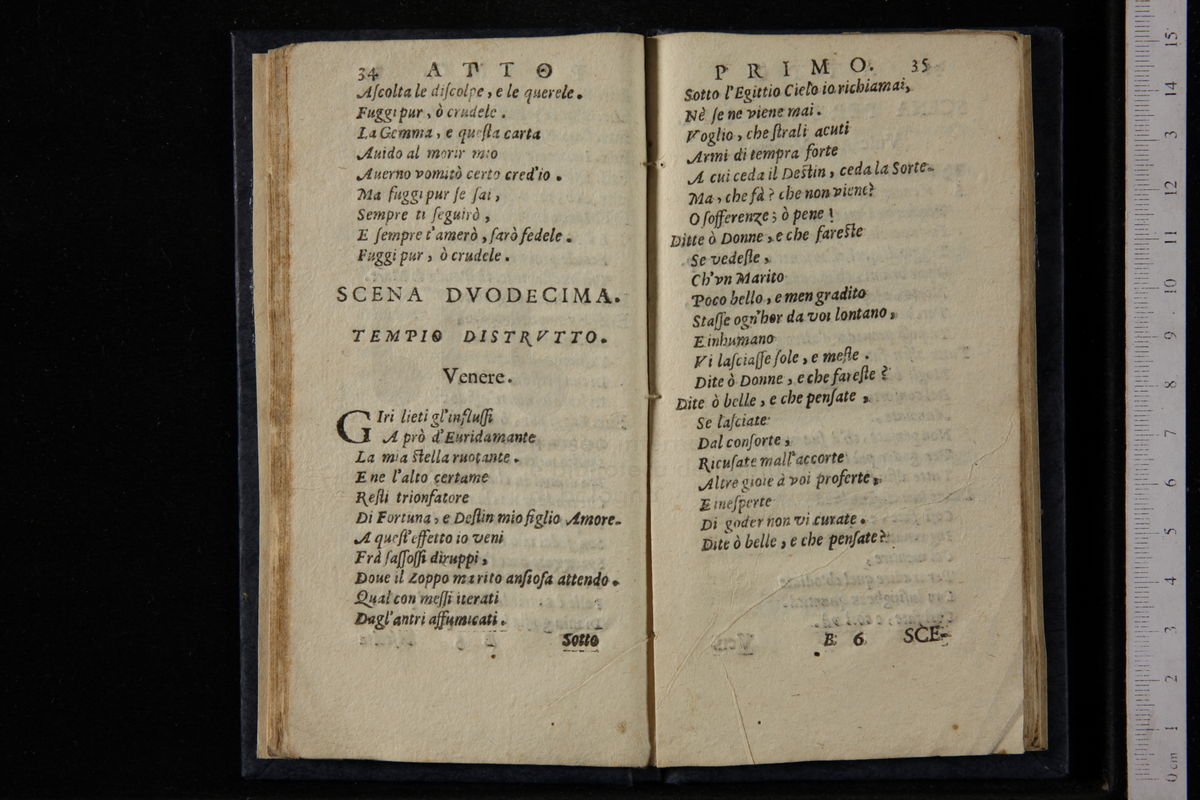 34 ATTO
Aſcolta le diſcolpe, e le querele.
Fuggi pur, ò crudele.
La Gemma, e queſta carta
Auido al morir mio
Auerno vomitò certo cred'io.
Ma fuggi pur ſe ſai,
Sempre ti ſeguirò,
E ſempre t'amerò, ſarò fedele.
Fuggi pur, ò crudele.
SCENA DVODECIMA.
TEMPIO DISTRVTTO.
Venere.
GIri lieti gl'influſſi
A prò d'Euridamante
La mia ſtella ruotante.
E ne l'alto certame
Reſti trionfatore
Di Fortuna, e Deſtin mio figlio Amore.
A queſt'effetto io veni
Frà ſaſſoſſi diruppi,
Doue il Zoppo marito anſioſa attendo.
Qual con meſſi iterati
Dagl'antri affumicati.
Sotto
PRIMO. 35
Sotto l'Egittio Cielo io richiamai,
Nè ſe ne viene mai.
Voglio, che ſtrali acuti
Armi di tempra forte
A cui ceda il Deſtin, ceda la Sorte.
Ma, che fà? che non viene?
O ſofferenze; ò pene!
Ditte ò Donne, e che fareſte
Se vedeſte,
Ch'vn Marito
Poco bello, e men gradito
Staſſe ogn'hor da voi lontano,
E inhumano
Vi laſciaſſe ſole, e meſte.
Dite ò Donne, e che fareſte?
Dite ò belle, e che penſate,
Se laſciate
Dal conſorte,
Ricuſate mall'accorte
Altre gioie à voi proferte,
E ineſperte
Di goder non vi curate.
Dite ò belle, e che penſate?
B 6 SCE-